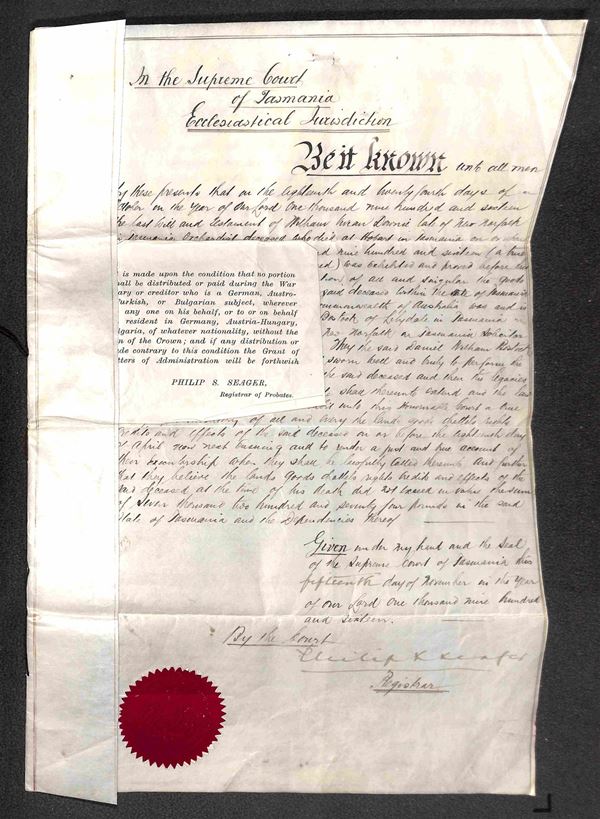 In the Supreme Court
of Tasmania
Ecclesiastical Jurisdiction
Be it known unto all men
by these presents that on the eighteenth and twenty fourth days of
in the Year of Our Lord One thousand nine hundred and sixteen
the last Will and Testament of William late of New Norfolk
in Tasmania Orchardist deceased who died at Hobart in Tasmania on or
nine hundred and sixteen (a true
was exhibited and proved before
of all and singular the goods
deceased within the State of Tasmania
Commonwealth of Australia was and is
of Lilydale in Tasmania
New Norfolk in Tasmania Solicitor
They the said Daniel
sworn well and truly to perform the
the said deceased and then the legacies
shall thereunto extend and the law
into this Honourable Court a true
is made upon the condition that no portion
all be distributed or paid during the War
ary or creditor who is a German, Austro-
urkish, or Bulgarian subject, wherever
any one on his behalf, or to or on behalf
resident in Germany, Austria-Hungary,
lgaria, of whatever nationality, without the
n of the Crown; and if any distribution or
de contrary to this condition the Grant of
tters of Administration will be forthwith
PHILIP S. SEAGER,
Registrar of Probates.
of all and every the lands goods chattels rights
credits and effects of the said deceased on or before the eighteenth day
of April now next ensuing and to render a just and true account of
their executorship when they shall be lawfully called thereunto And further
that they believe the lands goods chattels rights credits and effects of the
said deceased at the time of his death did not exceed in value the sum
of Seven thousand two hundred and seventy four pounds in the said
State of Tasmania and the Dependencies thereof
Given under my hand and the Seal
of the Supreme Court of Tasmania this
fifteenth day of November in the Year
of our Lord One thousand nine hundred
and sixteen.
By the Court
Philip S Seager
Registrar